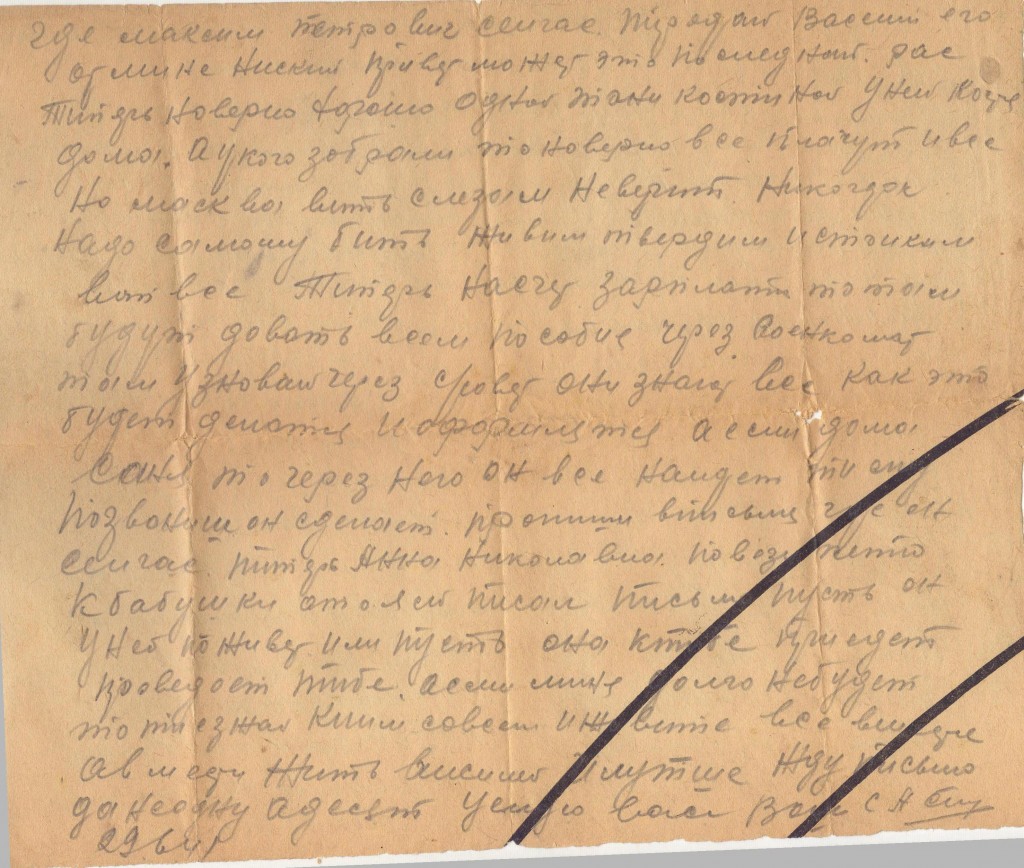 где максим петрович сейчас. Пиредай Васеии его
отмине Ниский Привет может это последний. рас
Типерь Новерно хорошо одной тани костиной Уней Костя
дома. А укого забрали то Новерно все плачут ивсе
Но масква вить слезам Неверит. Никогда
Надо самому бить живим твердим и
вот все Типерь Насчет зарплати то там
будут довать всем пособие через Военкомат
там Узновай через они знают все как это
будет делатся и оформлятся а если дома
Саня то через Него он все Наидет ти ему
Позвониш он сделает. Пропиши вписьми где он
сейчас. Типерь Анна Николавна.
К бабушки ато я ей писал письмо пусть он
Уней поживет или пусть она ктибе приедет
проведает тибе. а если мине долго Небудет
то поезжай Кним совсем и живите все вмисте
Авмести жить висилей и лутше Жду письмо
да Неодну а десять Целую Вася